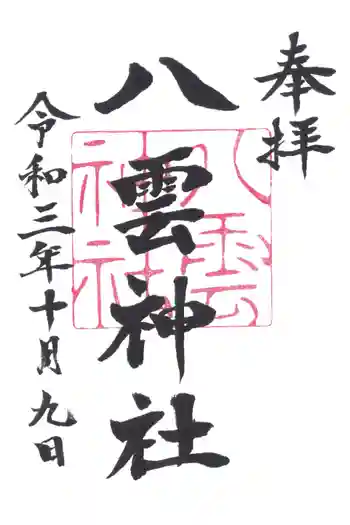 奉拝
八雲神社
八雲
神社
令和三年十月九日